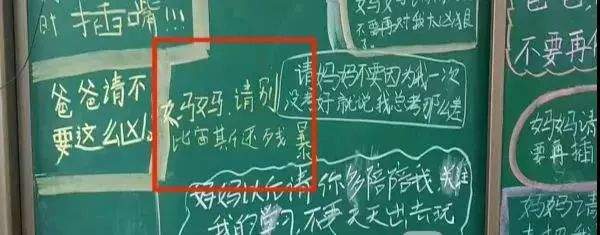 时插嘴!!!
爸爸请不
要这么凶。
妈妈.请别
比宙斯还残
暴
妈妈妈
不要再对我大凶狠
了
请妈妈不要因为我一次
没考好就说我总考那么差
妈妈以后请你多陪陪我,关注
我的学习,不要天天出去玩
爸爸
不要再
妈妈请
要再插
妈妈请